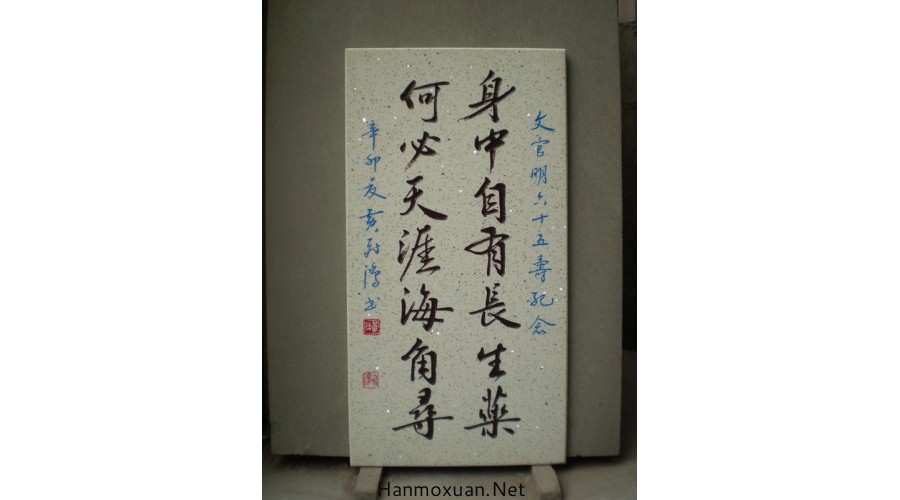 文官明六十五壽紀念
身中自有長生藥
何必天涯海角尋
辛卯夏黄
書
Hanmoxuan.Net